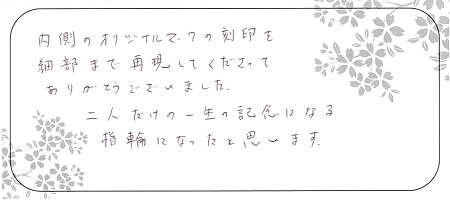 内側のオリジナルマークの刻印を
細部まで再現してくださって
ありがとうございました。
二人だけの一生の記念になる
指輪になったと思います。